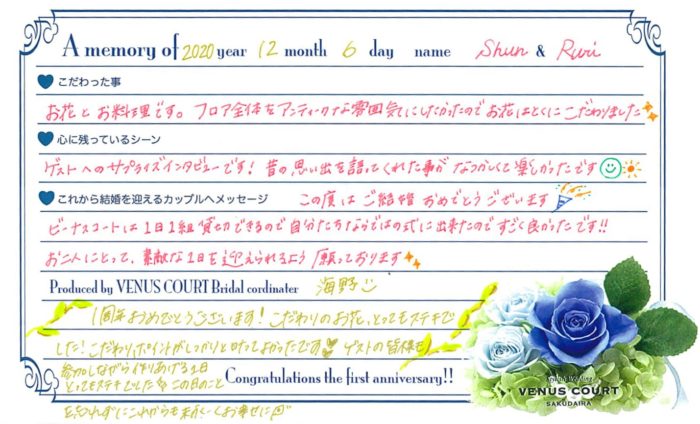 A memory of 2020 year 12 month 6 day name Shun & Ruri
こだわった事
お花とお料理です。フロア全体をアンティークな雰囲気にしたかったのでお花はとくにこだわりました
心に残っているシーン
ゲストへのサプライズインタビューです！昔の思い出を語ってくれた事がなつかしくて楽しかったです
これから結婚を迎えるカップルへメッセージ この度はご結婚おめでとうございます
ビーナスコートは1日1組貸切できるので自分たちならではの式に出来たのですごく良かったです!!
お二人にとって、素敵な1日を迎えられるよう願っております
Produced by VENUS COURT Bridal cordinater 海野
1周年おめでとうございます！こだわりのお花、とってもステキで
した！こだわりポイントがしっかりと叶ってよかったです ゲストの皆様も
参加しながら作りあげる1日
とってもステキでした この日のこと
Congratulations the first anniversary!!
忘れずにこれからも末永くお幸せに
VENUS COURT
SAKUDAIRA